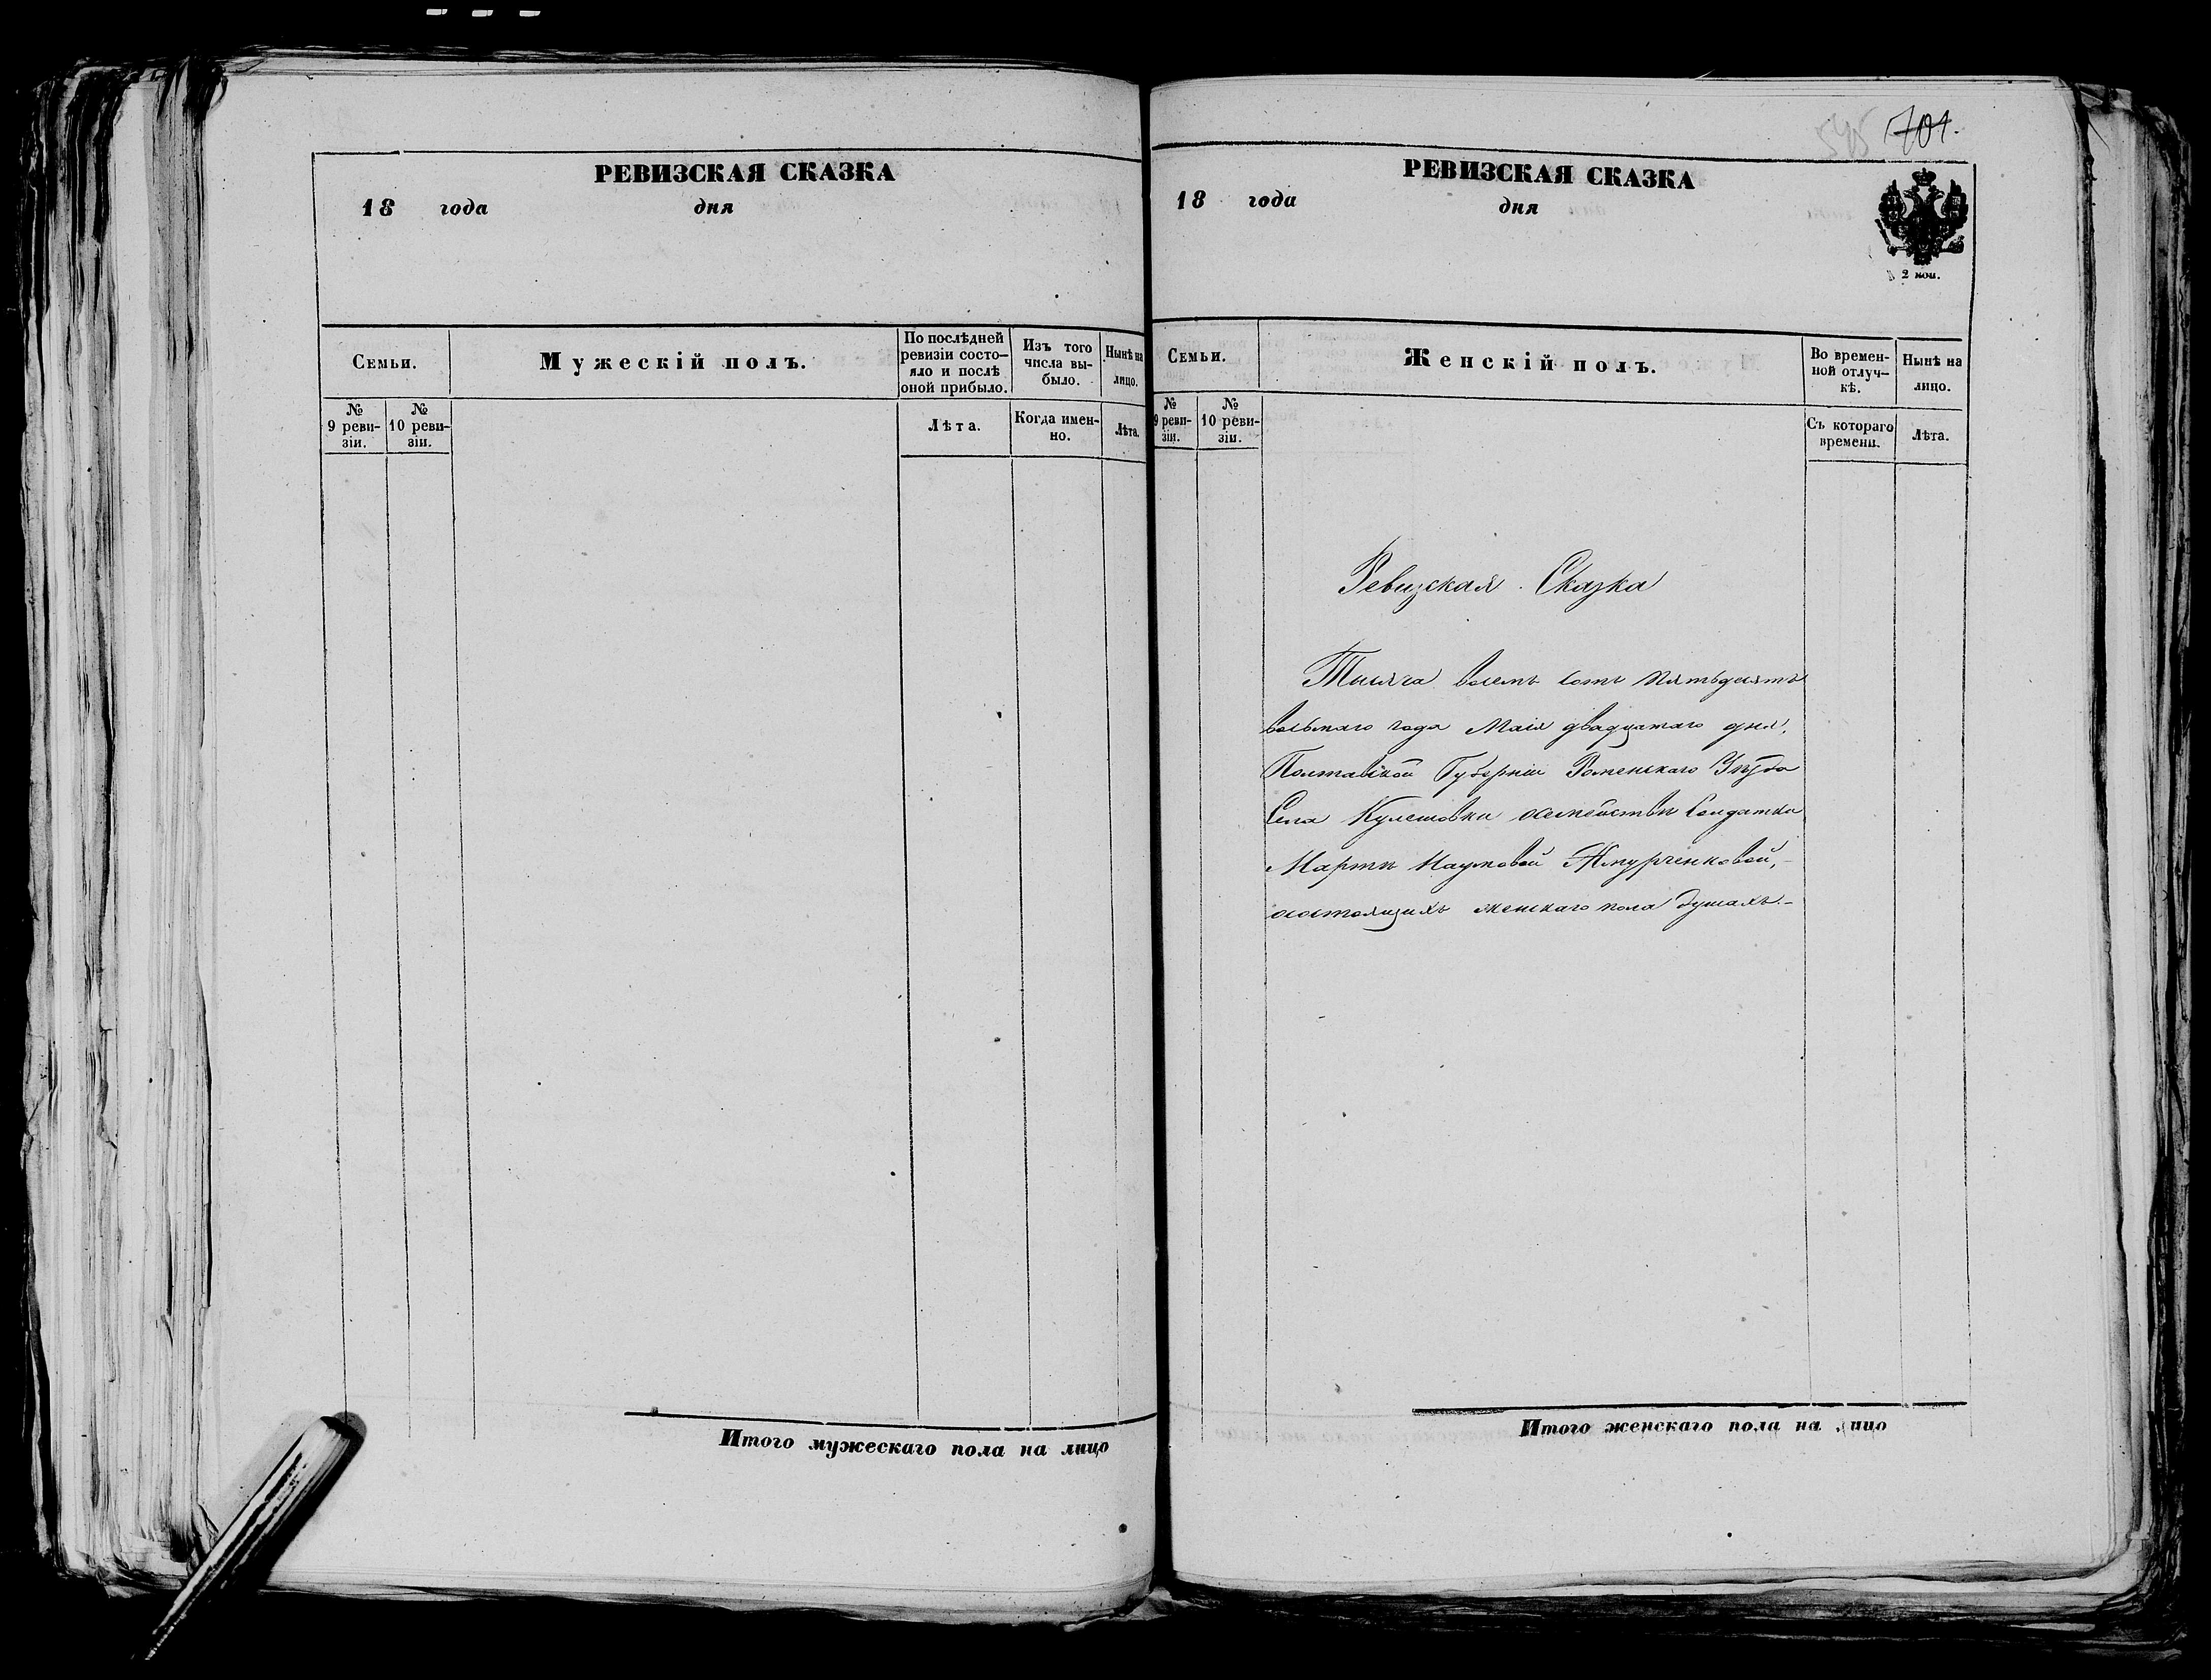 РЕВИЗСКАЯ СКАЗКА
18 года дня
Семьи.
Мужескій полъ.
По послѣдней
ревизіи состо-
яло и послѣ
оной прибыло.
Изъ того
числа вы-
было.
Нынѣ на
лицо.
№
9 реви-
зіи.
№
10 реви-
зіи.
Лѣта.
Когда имен-
но.
Лѣта.
Итого мужескаго пола на лицо
701.
РЕВИЗСКАЯ СКАЗКА
18 года дня
2 коп.
Семьи.
Женскій полъ.
Во времен-
ной отлуч-
кѣ.
Нынѣ на
лицо.
№
9 реви-
зіи.
№
10 реви-
зіи.
Съ котораго
времени.
Лѣта.
Ревизская Сказка
Тысяча восемъ сотъ пятьдесятъ
восьмаго года Маія двадцатаго дня,
Полтавской Губерніи Роменскаго Уѣзда
Села Кулешовки осемействѣ Солдатки
Марѳы Наумовой
осостоящихъ женскаго пола душахъ.-
Итого женскаго пола на лицо